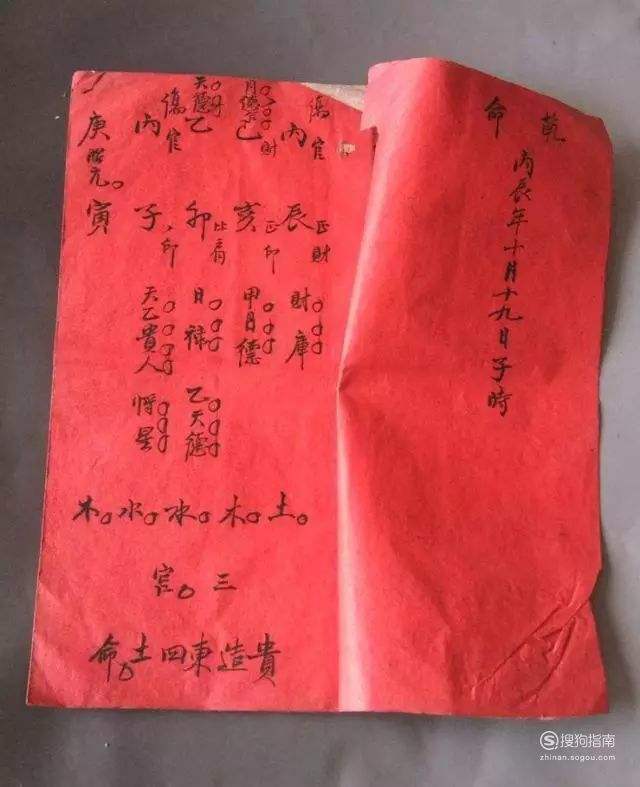 乾命
丙辰年十月十九日子時
傷官
丙辰
正財
財庫
月德合
己亥
財
正印
甲月德
天德
乙卯
比肩
日祿
乙天德
傷官
丙子
印
天乙貴人
將星
庚寅
胎元
土木水水木
三宮
貴造東四土命
搜狗指南
zhinan.sogou.com